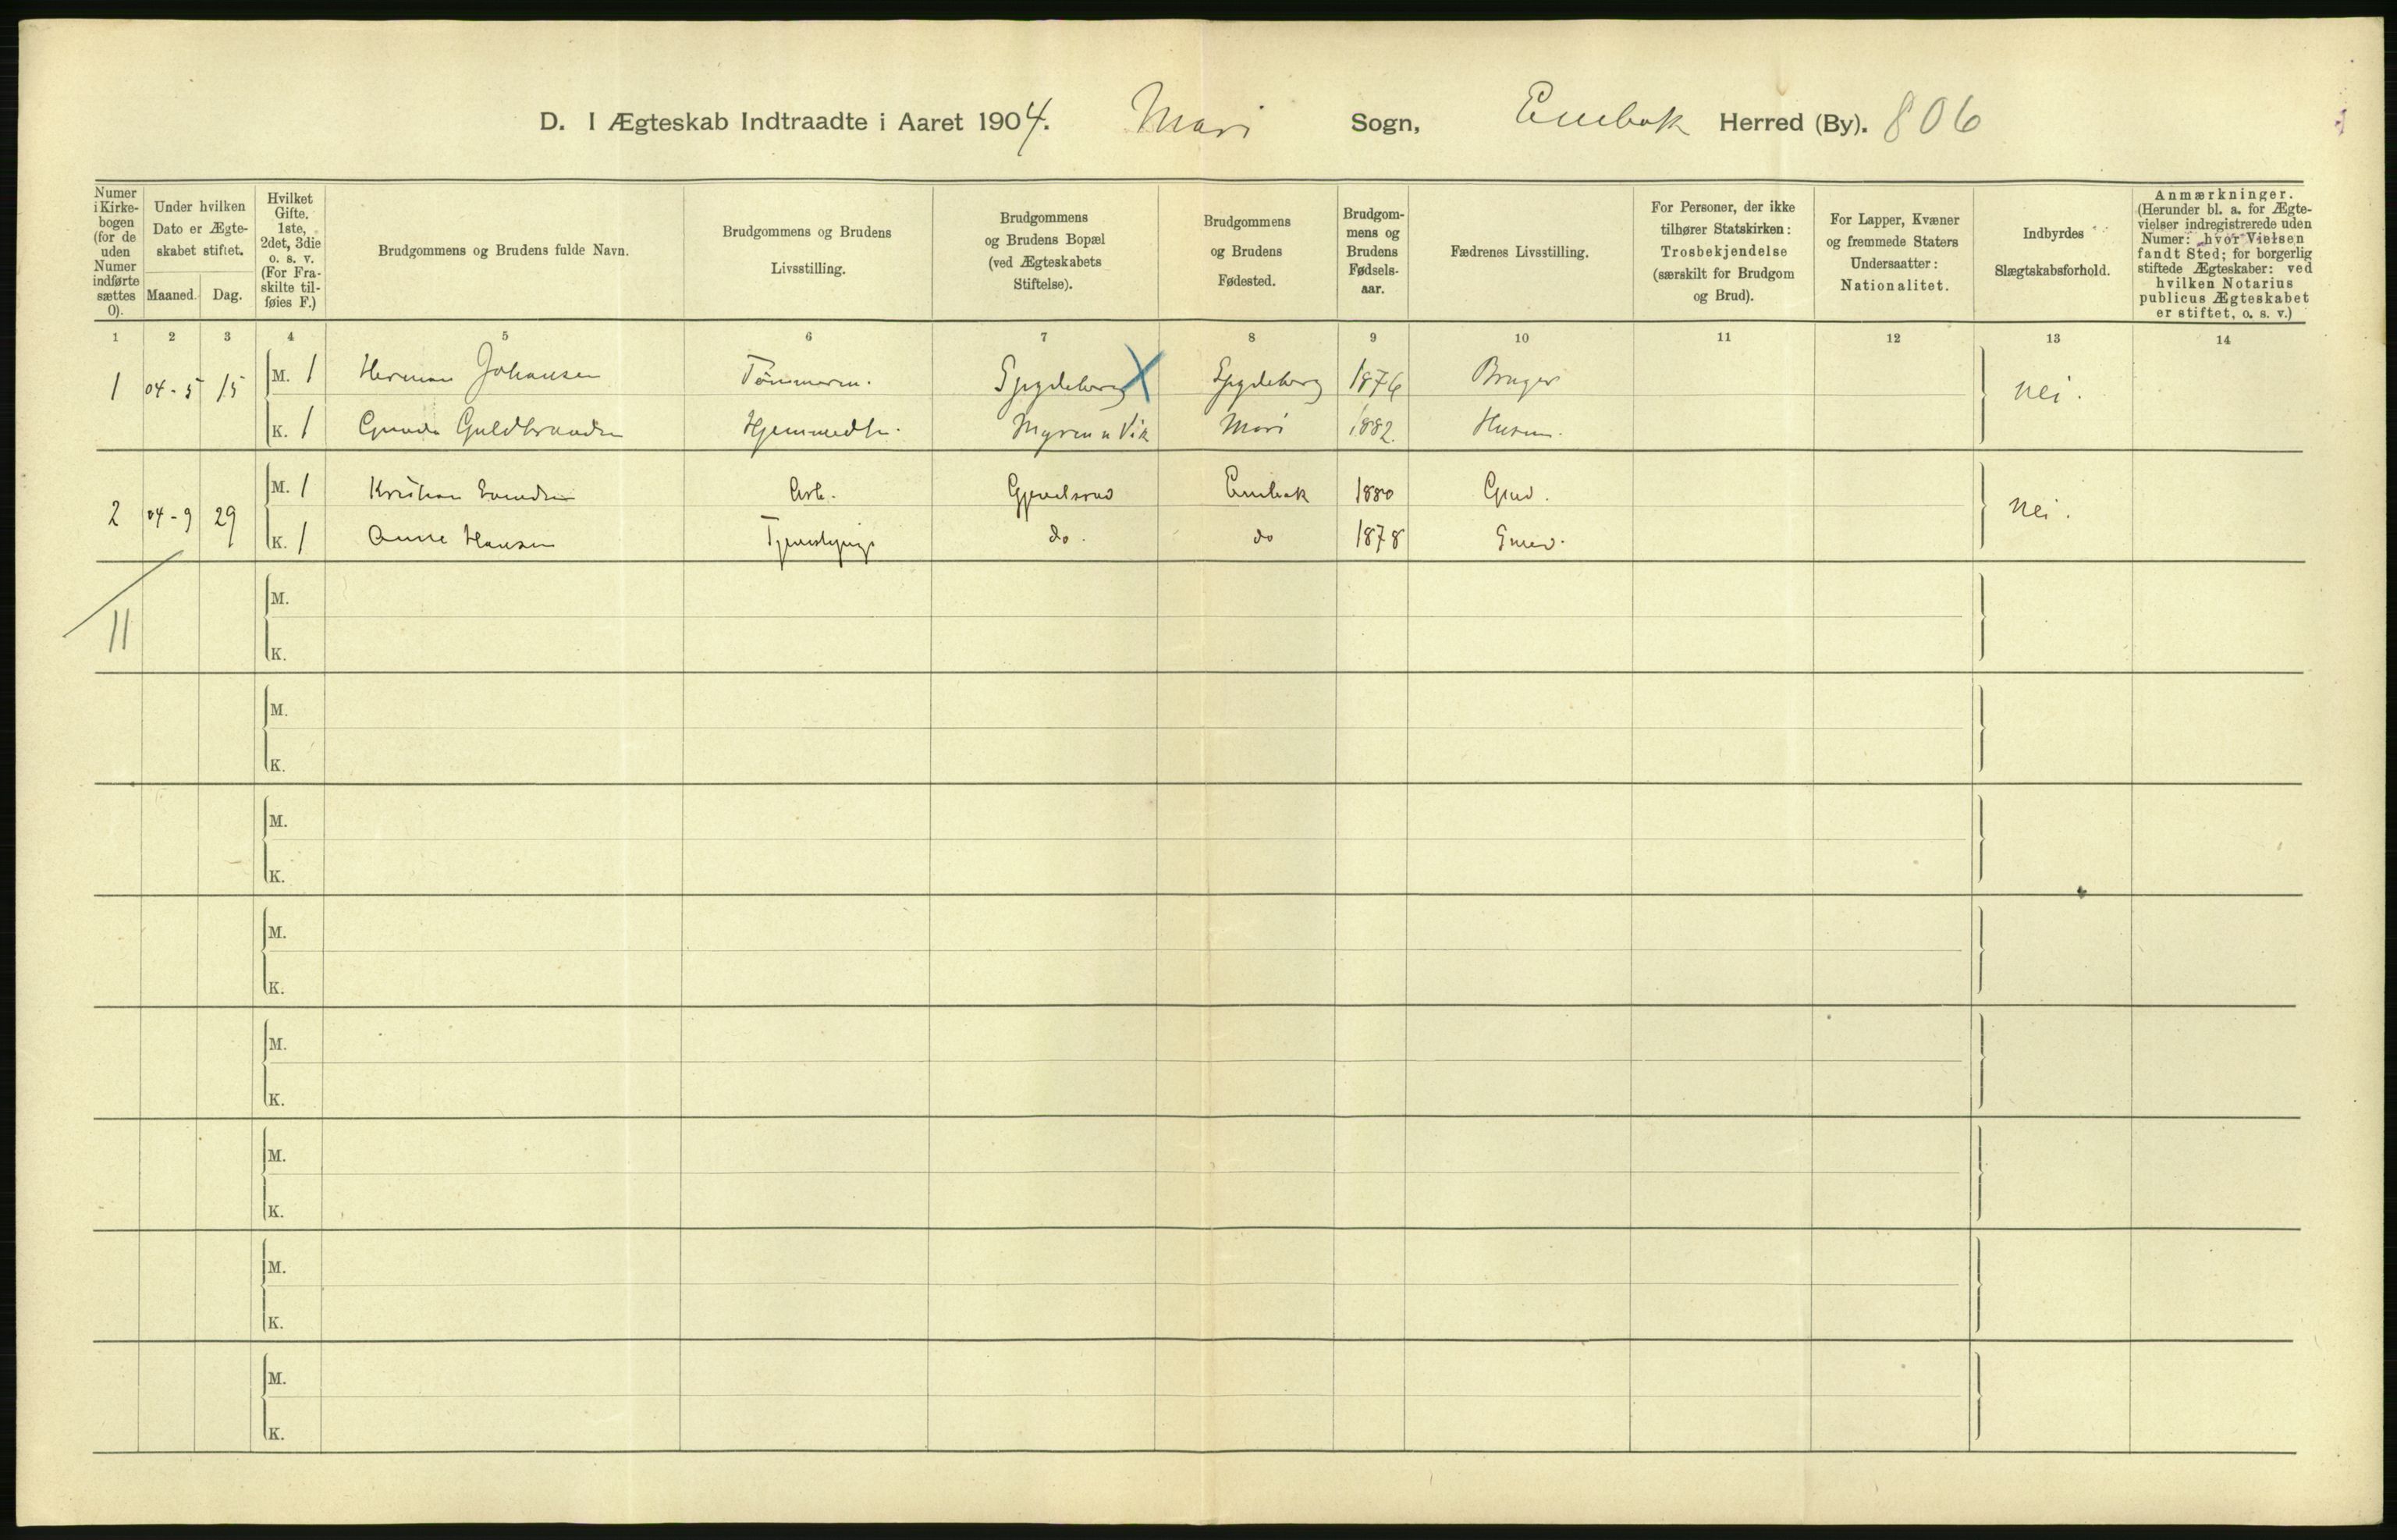 D. I Ægteskab Indtraadte i Aaret 1904. Mari Sogn, Enebak Herred (By). 806
Numer i Kirke-bogen (for de uden Numer indførte sættes 0).
Under hvilken Dato er Ægte-skabet stiftet.
Maaned. Dag.
Hvilket Gifte. 1ste, 2det, 3die o. s. v. (For Fra-skilte til-føies F.)
Brudgommens og Brudens fulde Navn.
Brudgommens og Brudens Livsstilling.
Brudgommens og Brudens Bopæl (ved Ægteskabets Stiftelse).
Brudgommens og Brudens Fødested.
Brudgom-mens og Brudens Fødsels-aar.
Fædrenes Livsstilling.
For Personer, der ikke tilhører Statskirken: Trosbekjendelse (særskilt for Brudgom og Brud).
For Lapper, Kvæner og fremmede Staters Undersaatter: Nationalitet.
Indbyrdes Slægtskabsforhold.
Anmærkninger. (Herunder bl. a. for Ægte-vielser indregistrerede uden Numer: hvor Vielsen fandt Sted; for borgerlig stiftede Ægteskaber: ved hvilken Notarius publicus Ægteskabet er stiftet, o. s. v.)
1 2 3 4 5 6 7 8 9 10 11 12 13 14
1 04-5 15 M. 1 Herman Johansen Tømmerm. Spydeberg X Spydeberg 1876 Bruger nei.
K. 1 Gunda Guldbrandsen Hjemmedt. Myren u Vik Mari 1882. Husm.
2 04-9 29 M. 1 Kristian Arb. Enebak 1880 Grd. nei.
K. 1 Anne Hansen do. do 1878
11 M.
K.
M.
K.
M.
K.
M.
K.
M.
K.
M.
K.
M.
K.
M.
K.